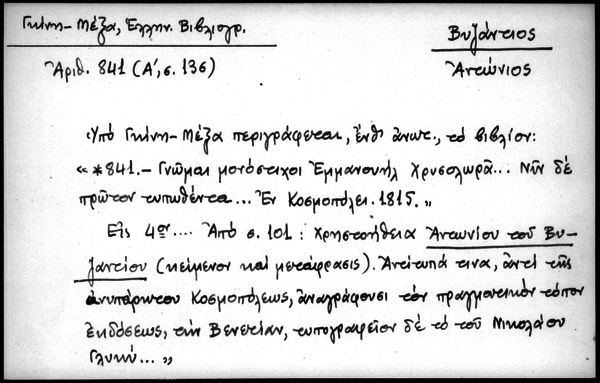 Γκίνη-Μέξα, Ἑλλην. Βιβλιογρ.
Βυζάντιος
Ἀριθ. 841 (Α', σ. 136)
Ἀντώνιος
Ὑπό Γκίνη-Μέξα περιγράφεται, ἔνθ' ἀνωτ., τό βιβλίον:
« *841.- Γνῶμαι μονόστιχοι Ἐμμανουήλ Χρυσολωρᾶ... Νῦν δέ
πρῶτον τυπωθέντα... Ἐν Κοσμοπόλει. 1815. „
Εἰς 4ον.... Ἀπό σ. 101: Χρηστοήθεια Ἀντωνίου τοῦ Βυ-
ζαντίου (κείμενον καί μετάφρασις). Ἀντίτυπά τινα, ἀντί τῆς
ἀνυπάρκτου Κοσμοπόλεως, ἀναγράφουσι τόν πραγματικόν τόπον
ἐκδόσεως, τήν Βενετίαν, τυπογραφεῖον δέ τό τοῦ Νικολάου
Γλυκύ... „